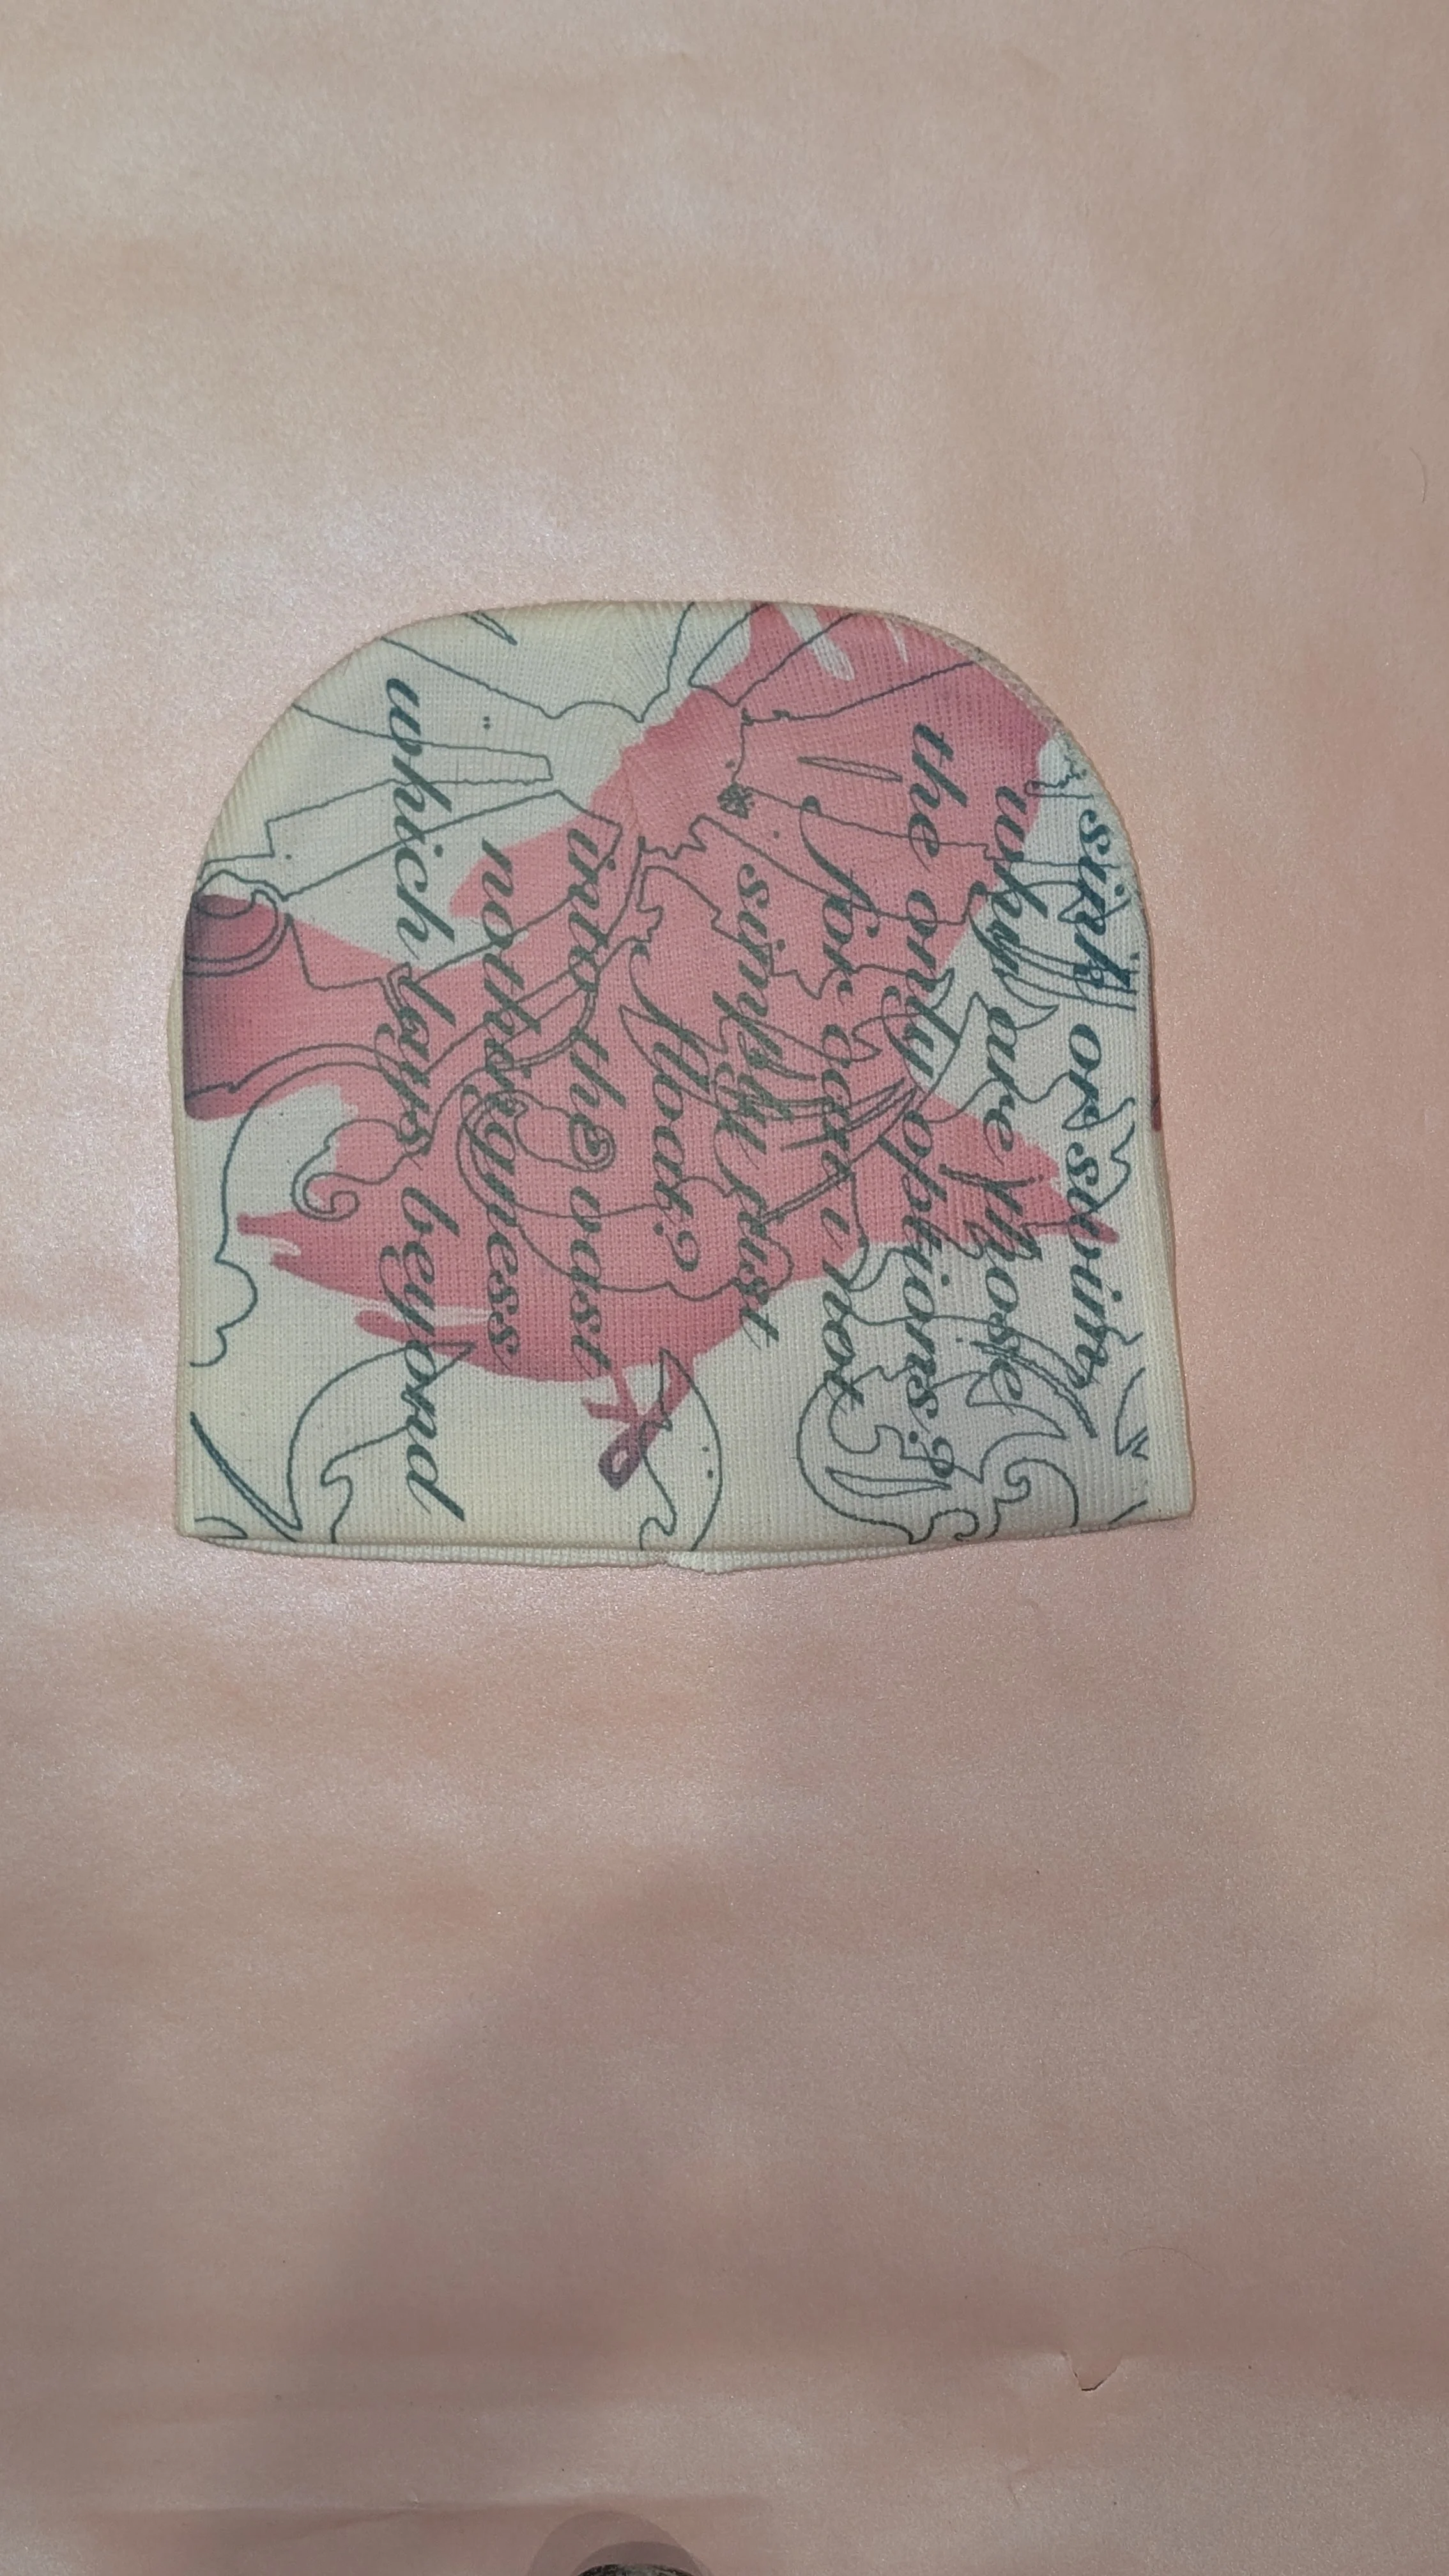 sink or swim
why are those
the only options?
for can't i not
simply just
float?
into the vast
nothingness
which lays beyond